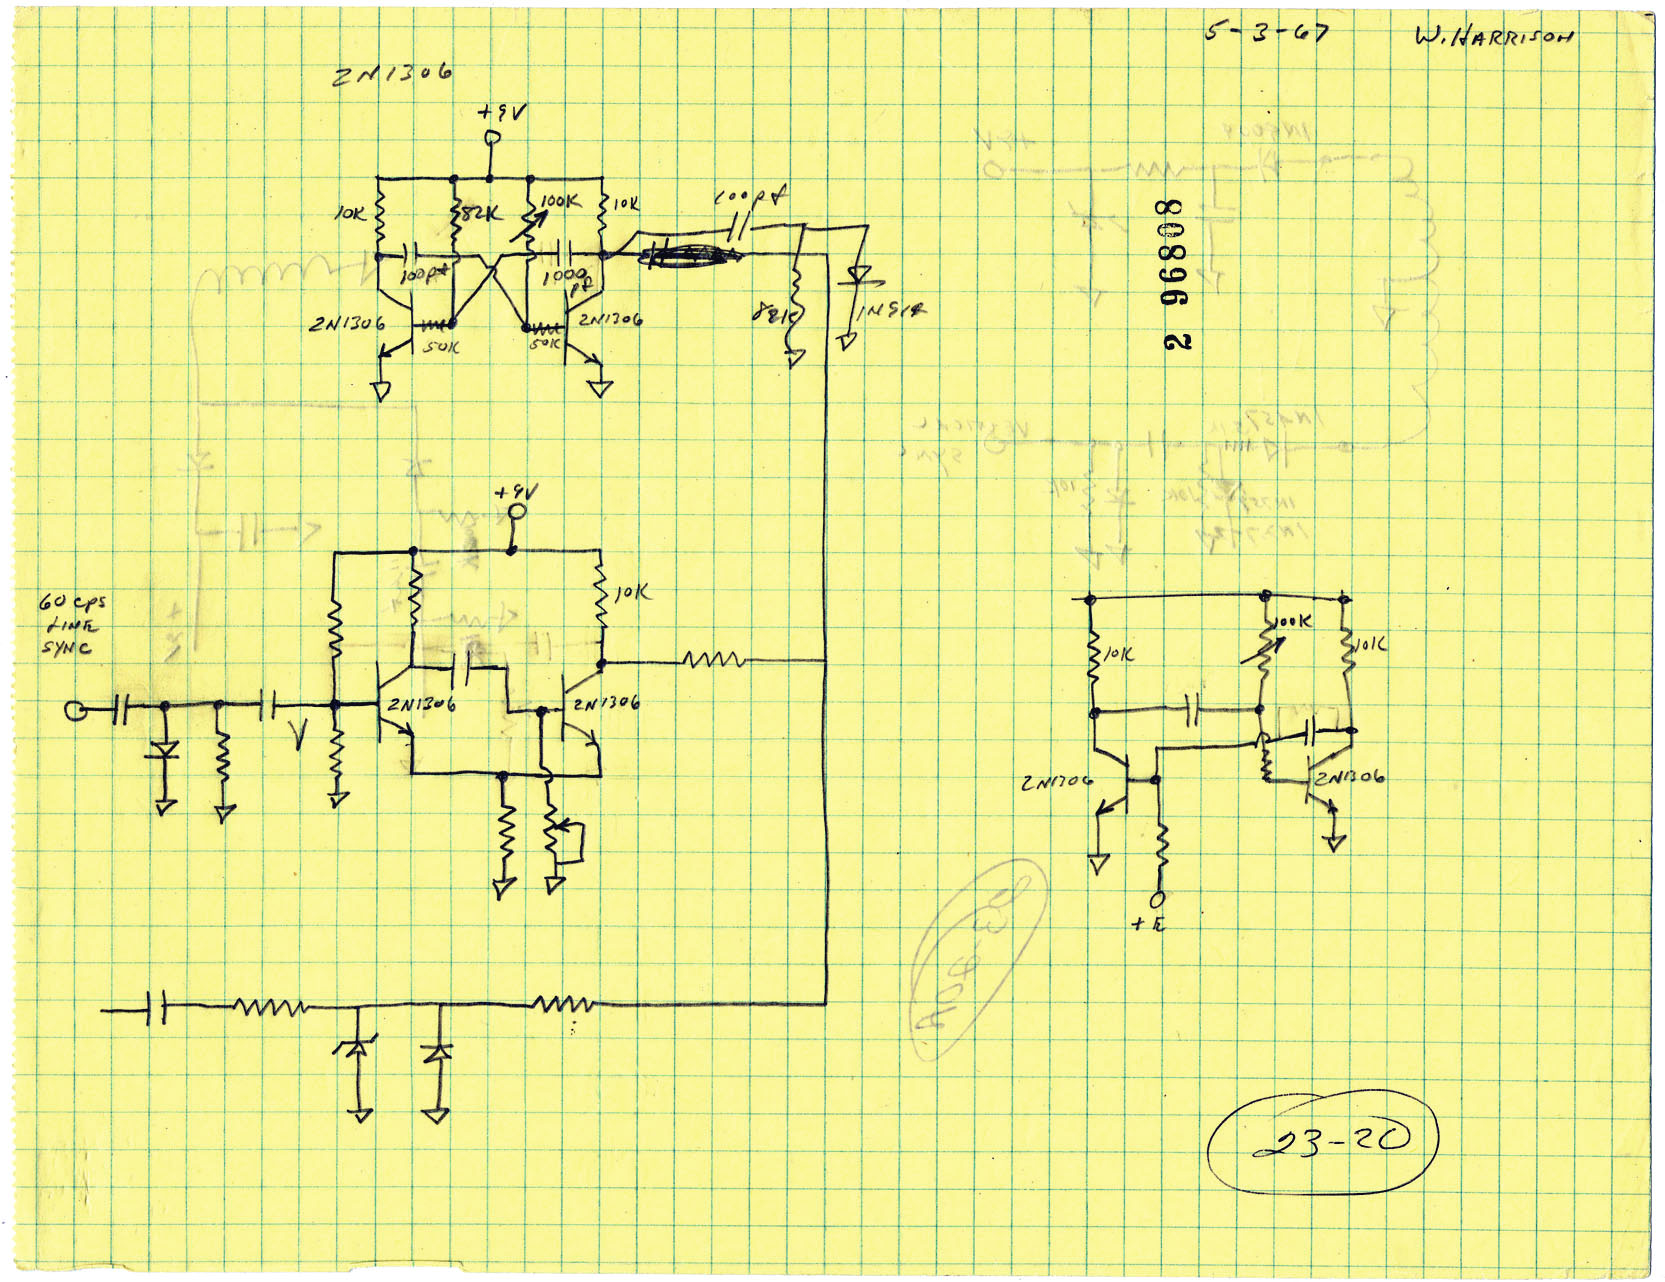 5-3-67 W. HARRISON
2N1306
+9V
10K 82K 100K 10K
100pf
100pf 1000
pf
2N1306 2N1306
50K 50K
82K 1N914
2 96808
+9V
60 cps
LINE
SYNC
10K
2N1306 2N1306
100K
10K 10K
2N1306 2N1306
+E
23-20